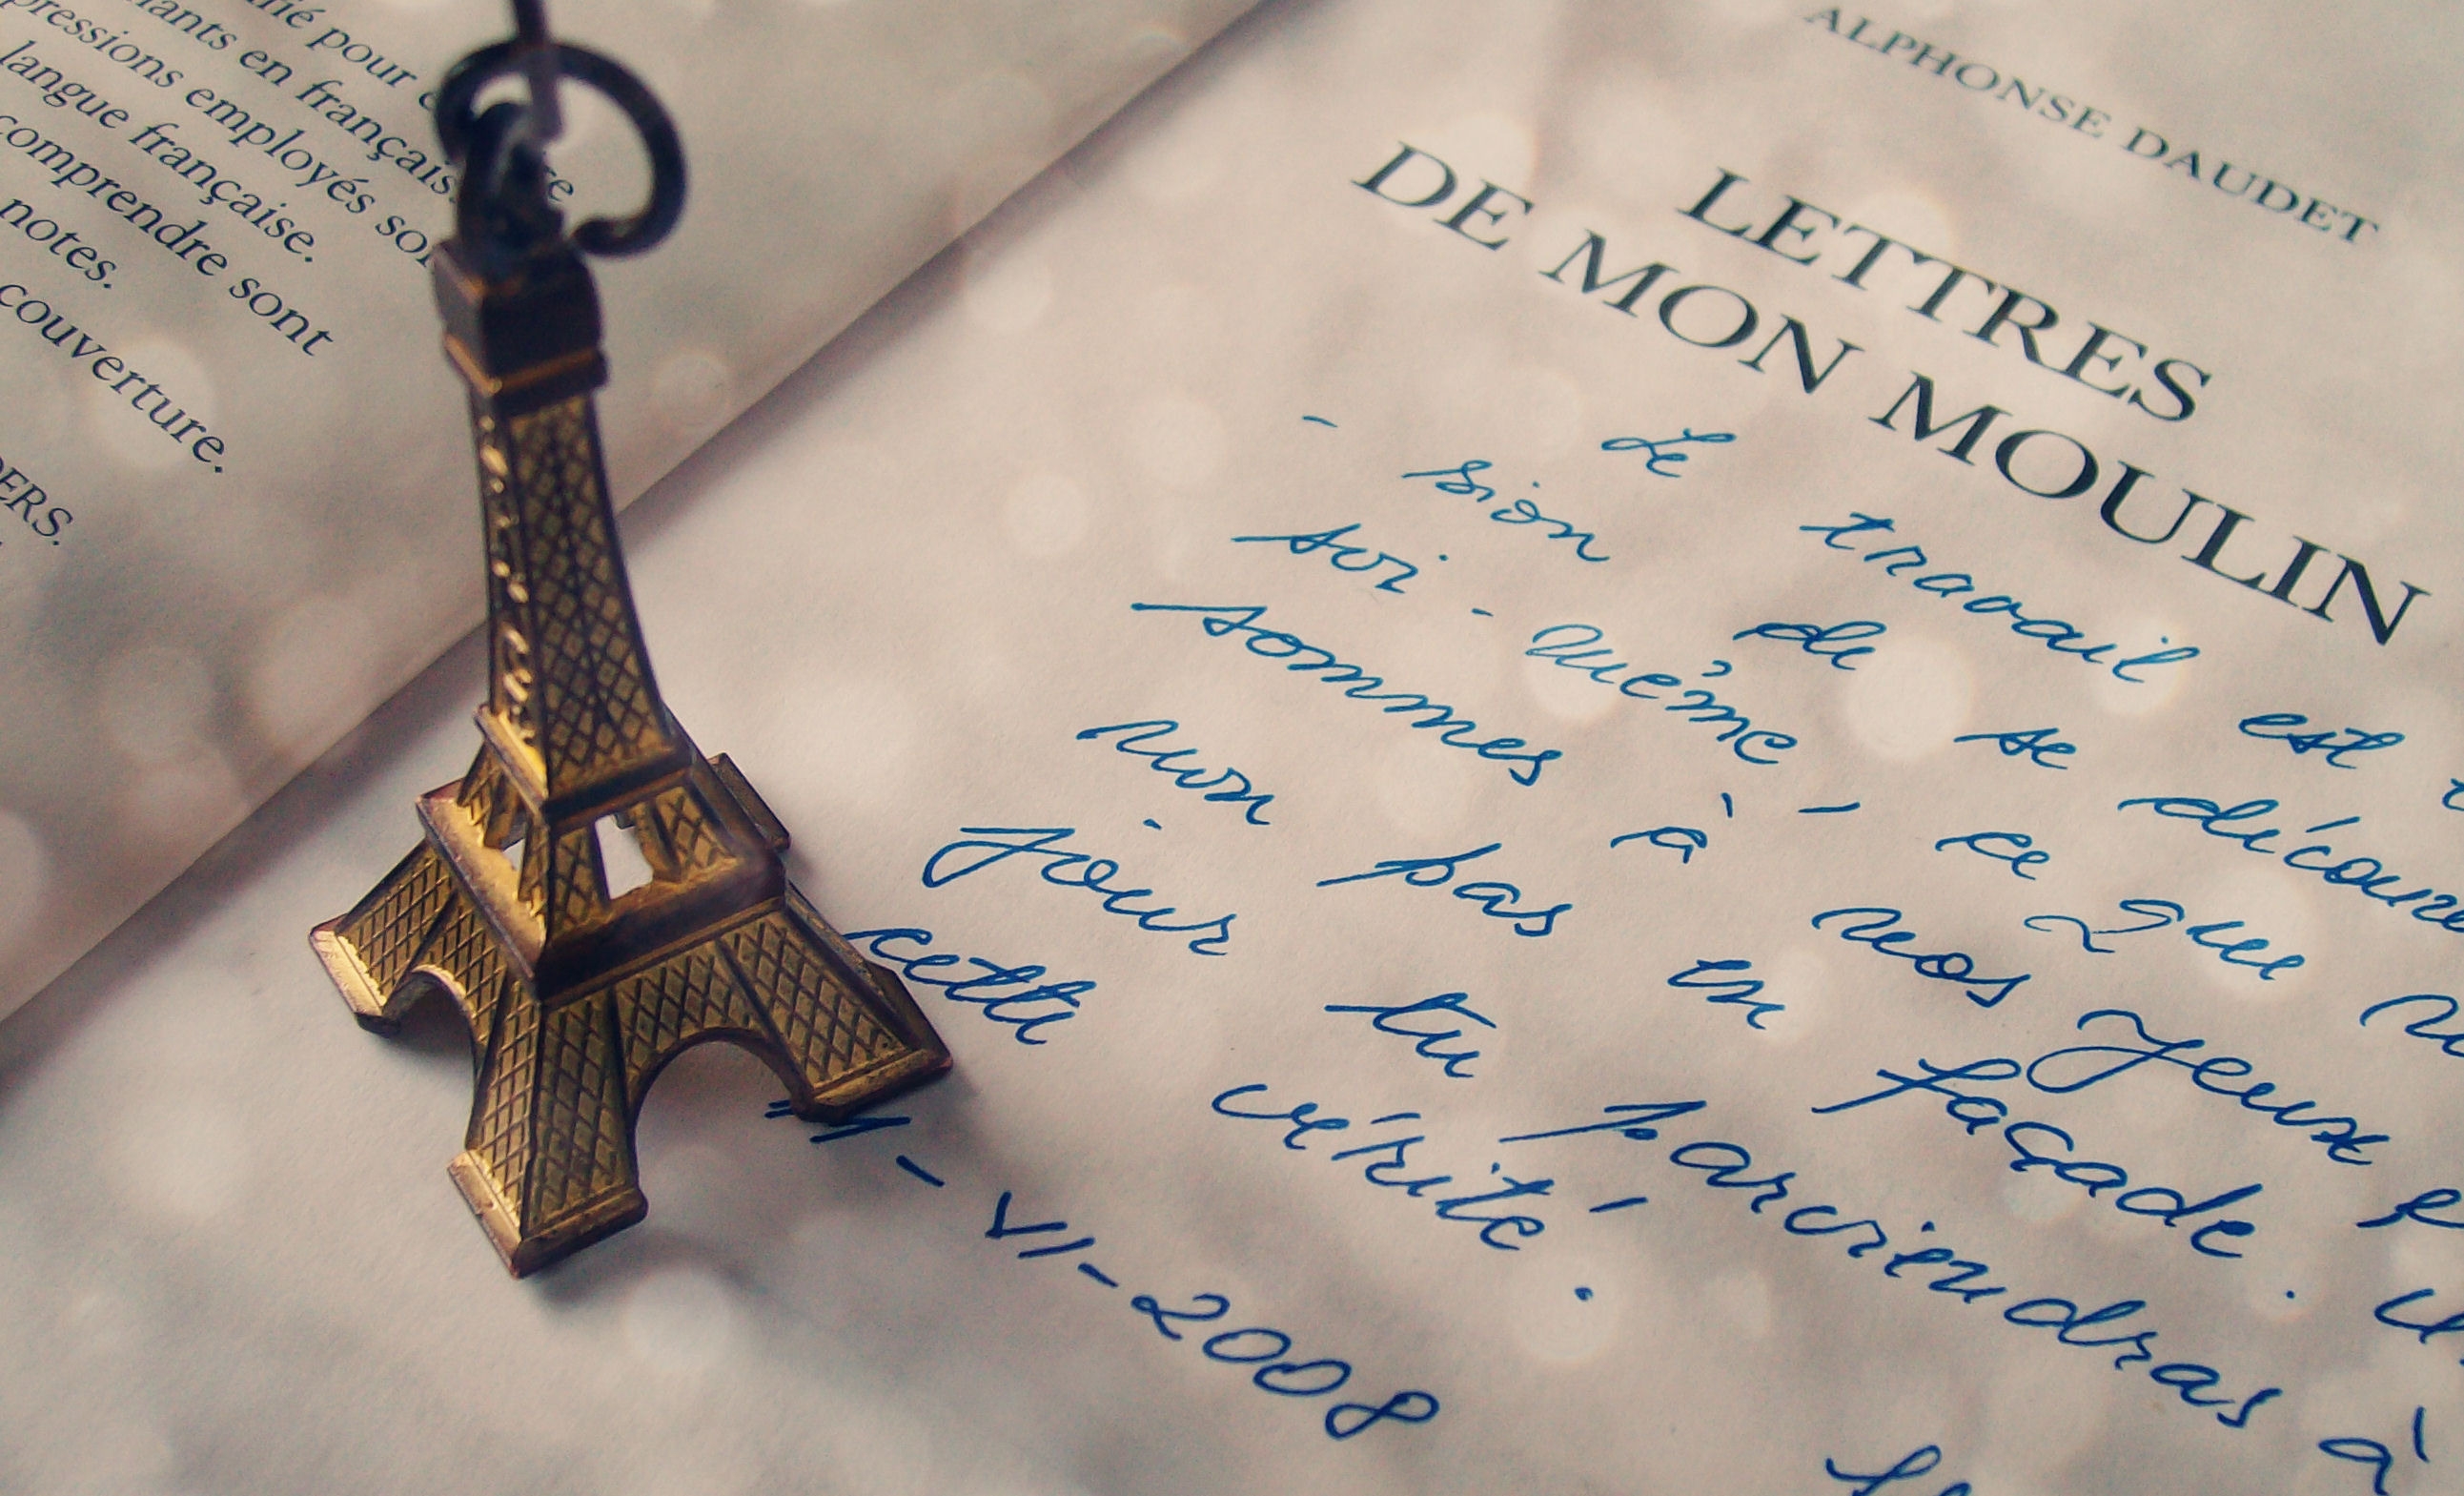 pour
en français.
employés
langue française.
comprendre sont
notes.
couverture.
ALPHONSE DAUDET
LETTRES
DE MON MOULIN
Le travail est
- sion de se
soi-même, ce que
sommes à nos yeux
non pas en façade.
jour tu parviendras à
cette vérité.
VI-2008